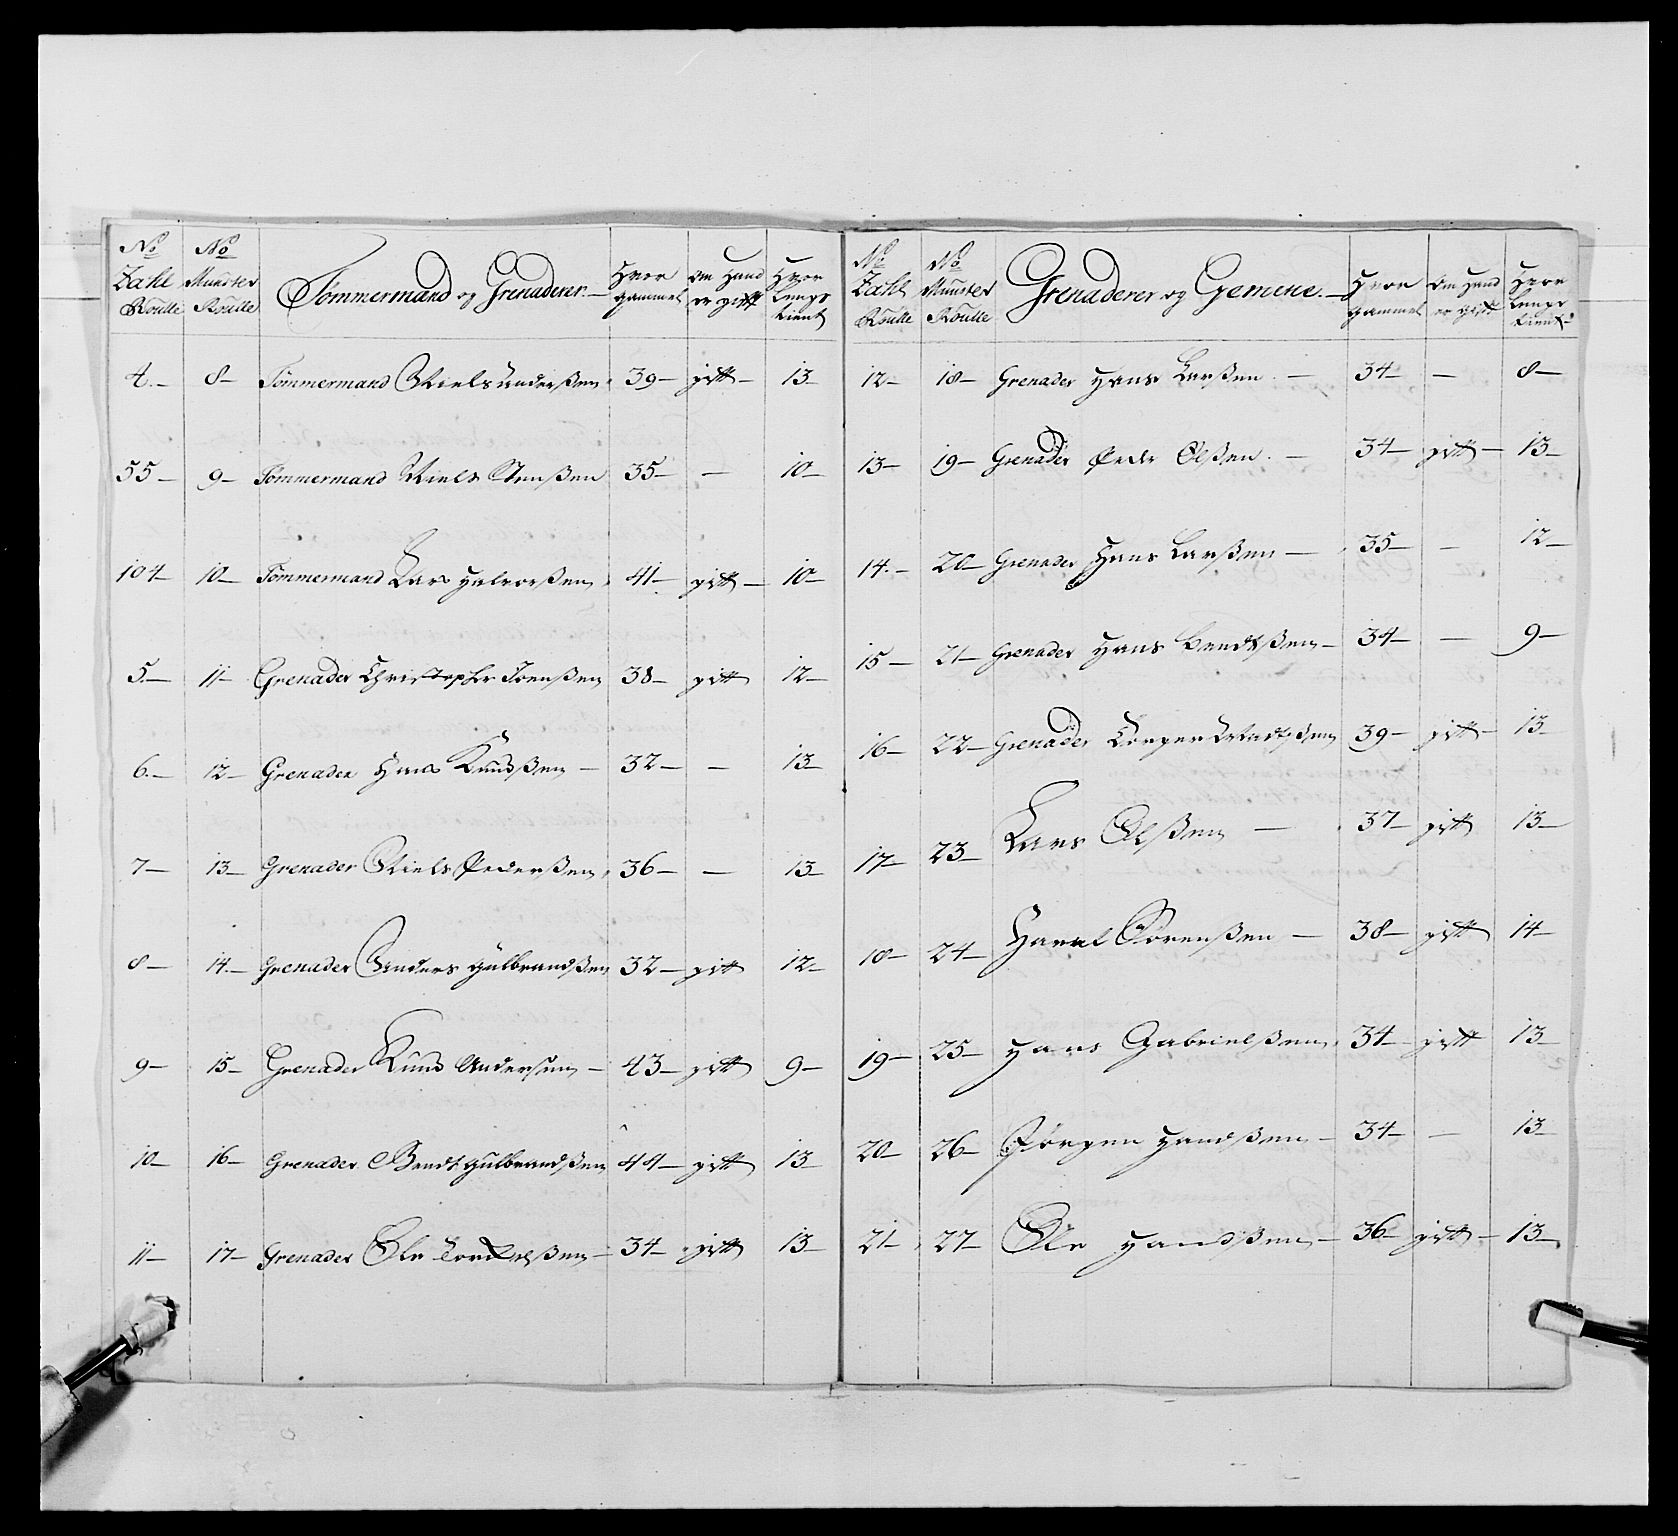 No Zahl Roulle | No Munster Roulle | Tømmermand og Grenaderer | Hvor gammel | Om Hand er gift | Hvor lenge tient
4 | 8 | Tømmermand Niels Anderßen | 39 | gift | 13
55 | 9 | Tømmermand Niels Stenßen | 35 | — | 10
104 | 10 | Tømmermand Lars Halvorßen | 41 | gift | 10
5 | 11 | Grenader Christopher Joenßen | 38 | gift | 12
6 | 12 | Grenader Hans Knudßen | 32 | — | 13
7 | 13 | Grenader Niels Pederßen | 36 | — | 13
8 | 14 | Grenader Anders Gulbrandßen | 32 | gift | 12
9 | 15 | Grenader Knud Andersen | 43 | gift | 9
10 | 16 | Grenader Bendt Gulbrandßen | 44 | gift | 13
11 | 17 | Grenader Ole | 34 | gift | 13
No Zahl Roulle | No Munster Roulle | Grenaderer og Gemene | Hvor gammel | Om Hand er gift | Hvor lenge tient
12 | 18 | Grenader Hans Larßen | 34 | — | 8
13 | 19 | Grenader Peder Olßen | 34 | gift | 13
14 | 20 | Grenader Hans Larßen | 35 | — | 12
15 | 21 | Grenader Hans Bendtßen | 34 | — | 9
16 | 22 | Grenader | 39 | gift | 13
17 | 23 | Lars Olßen | 37 | gift | 13
18 | 24 | Sørenßen | 38 | gift | 14
19 | 25 | Hans Gabrielßen | 34 | gift | 13
20 | 26 | Jørgen Handßen | 34 | — | 13
21 | 27 | Ole Handßen | 36 | gift | 13